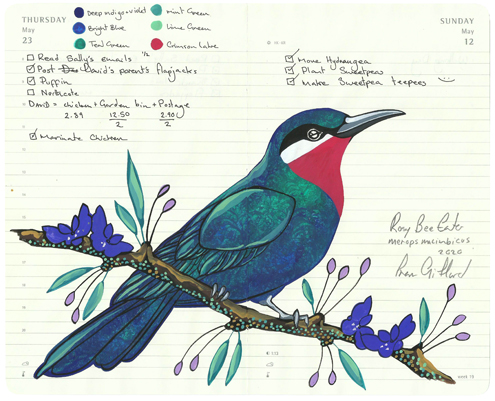 THURSDAY
May
23
Deep indigo-violet
mint Green
Bright Blue
Lime Green
Teal Green
Crimson Lake
Read Sally's emails 1/2
Post David's parent's flapjacks
Puffin
Northcote
DAVID = chicken + Garden bin + Postage
2.39 12.50 2.90
2 2
Marinate Chicken
SUNDAY
May
12
Move Hydrangea
Plant Sweetpeas
Make Sweetpea teepees
Rosy Bee Eater
merops malimbicus
2020
week 19